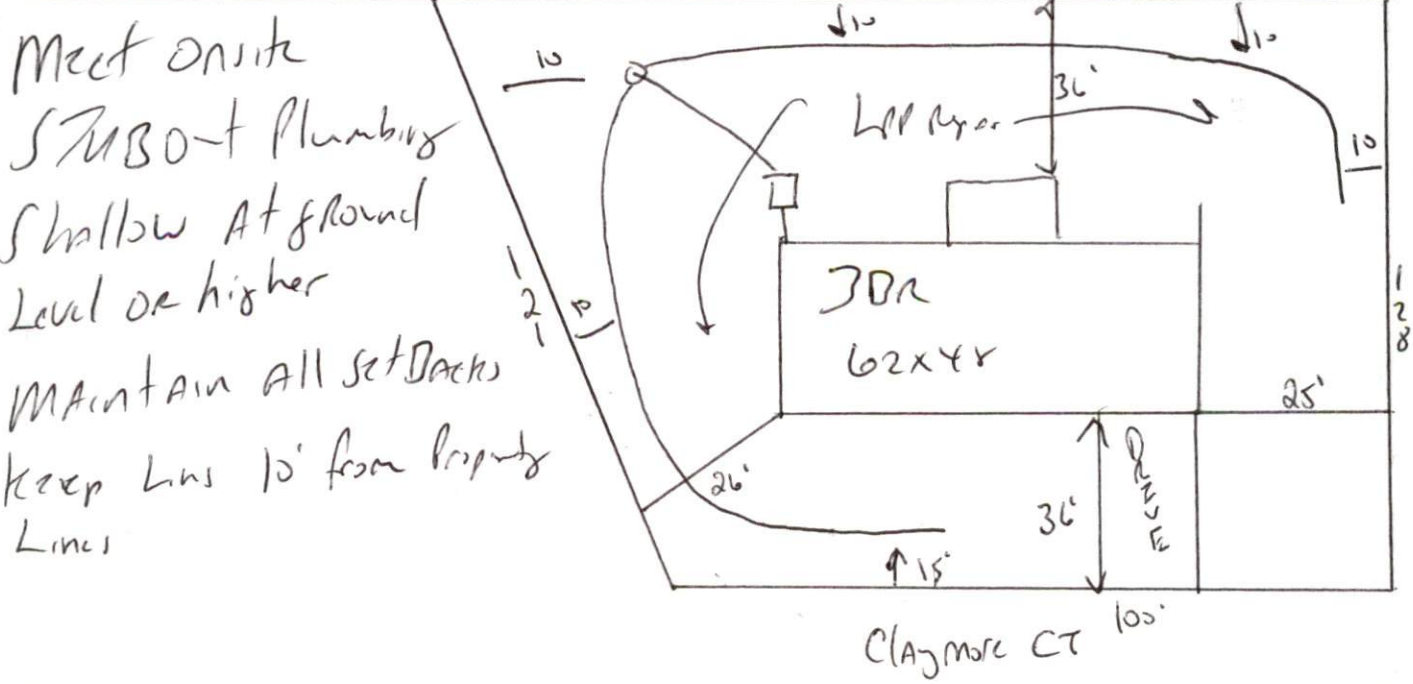 Meet onsite
STUB Out Plumbing
Shallow At ground
Level or higher
MAintAin All SetBacks
Keep Lins 10' from Property
Lines
10
10
10
36'
LPP Repair
10
10
121
3BR
62x48
128
25'
26'
36'
DRIVE
15'
100'
Claymore CT